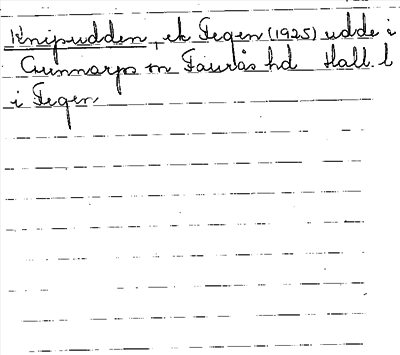 Knipudden, ek Fegen (1925) udde i
Gunnarps sn Faurås hd Hall. l
i Fegen.